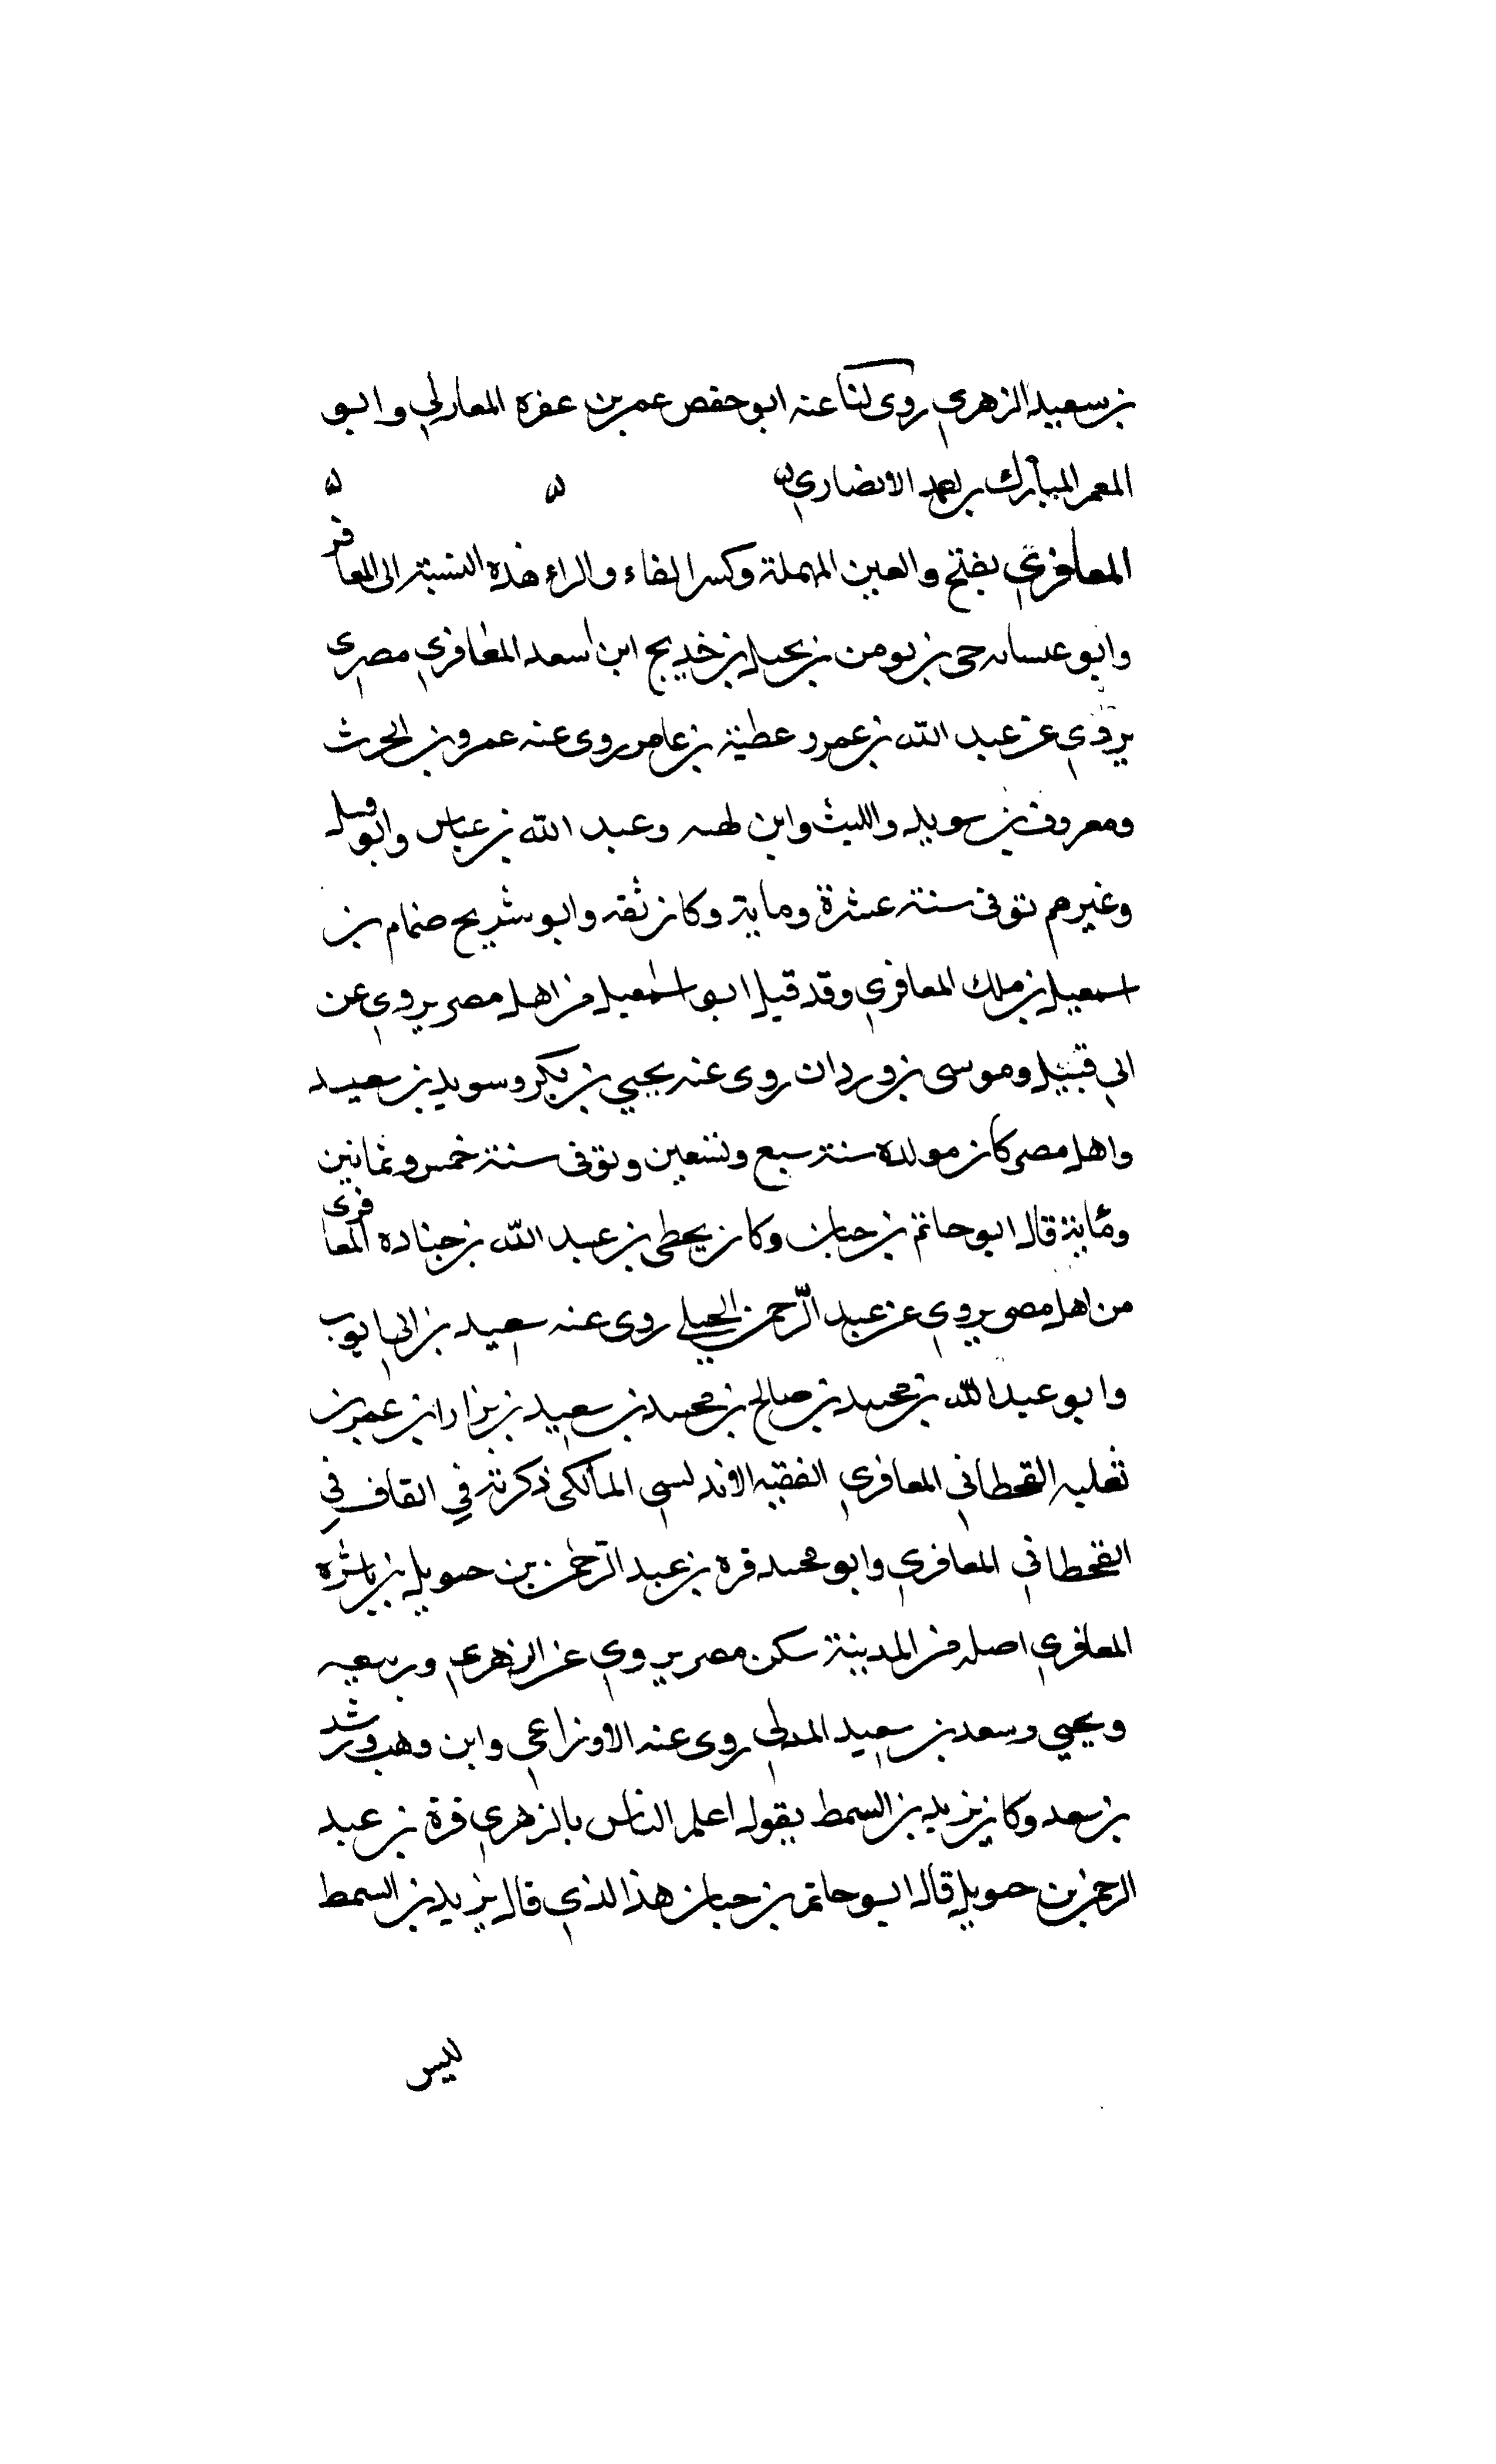 بن سعيد الزهري روى لنا عنه ابو حفص عمر بن عفره المعارلي وابو
المعمر المبارك بن احمد الانصاري
المعافري بفتح والعين المهملة وكسر الفاء والراء هذه النسبة الى المعافر
وابو عسانه حي بن يومن بن بحيل بن خديج ابن اسعد المغافري مصرى
يروي عن عبد الله بن عمرو عطية بن عامر روى عنه عمرو بن الحرث
ومعروف بن سويد والليث وابن لهيه وعبد الله بن عباس وابو قبيل
وغيرهم توفى سنة عشرة وماية وكان ثقه وابو شريح ضمام بن
اسمعيل بن ملك المعافري وقد قيل ابو اسمعيل من اهل مصر يروي عن
ابي قبيل وموسى بن وردان روى عنه يحيي بن بكر وسويد بن سعيد
واهل مصر كان مولده سنة سبع وتسعين وتوفى سنة خمس وثمانين
وماية قال ابو حاتم بن حبان وكان يخطى بن عبد الله بن جناده المعافرى
من اهل مصر يروي عن عبد الرحمن الحبلي روى عنه سعيد بن ابي ايوب
وابو عبد الله بن محمد بن صالح بن محمد بن سعيد بن نزار ابن عمر بن
ثعلبه القحطاني المعافري الفقيه الاندلسي المالكى ذكرته في القاف في
القحطاني المعافري وابو محمد قره بن عبد الرحمن بن حيويل بن ناشره
المعافري اصله من المدينة سكن مصر يروي عن الزهري وربيعه
ويحيي وسعد بن سعيد المدني روى عنه الاوزاعي وابن وهب ورشد
بن سعد وكان يزيد بن السمط يقول اعلم الناس بالزهري قرة بن عبد
الرحمن بن حيويل قال ابو حاتم بن حبان هذا الذي قال يزيد بن السمط
ليس